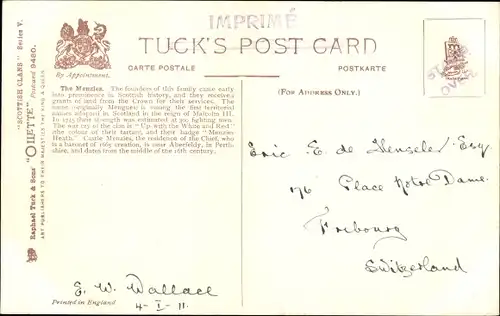 IMPRIMÉ
TUCK'S POST CARD
CARTE POSTALE
POSTKARTE
By Appointment.
(FOR ADDRESS ONLY.)
The Menzies. The founders of this family came early
into prominence in Scottish history, and they received
grants of land from the Crown for their services. The
name originally Mengues is among the first territorial
names assigned in Scotland in the reign of Malcolm III.
In 1745 their strength was estimated at 300 fighting men.
The war cry of the clan is "Up with the White and Red"
the colour of their tartan, and their badge "Menzies
Heath." Castle Menzies, the residence of the Chief, who
is a baronet of 1665 creation, is near Aberfeldy, in Perth-
shire, and dates from the middle of the 16th century.
"SCOTTISH CLANS" Series V.
Raphael Tuck & Sons' "OILETTE" Postcard 9480.
ART PUBLISHERS TO THEIR MAJESTIES THE KING & QUEEN
Eric E. de Wensele Esq.
176 Place Notre Dame
Fribourg
Switzerland
E. W. Wallace
4-I-11.
Printed in England
STAMP
OVER